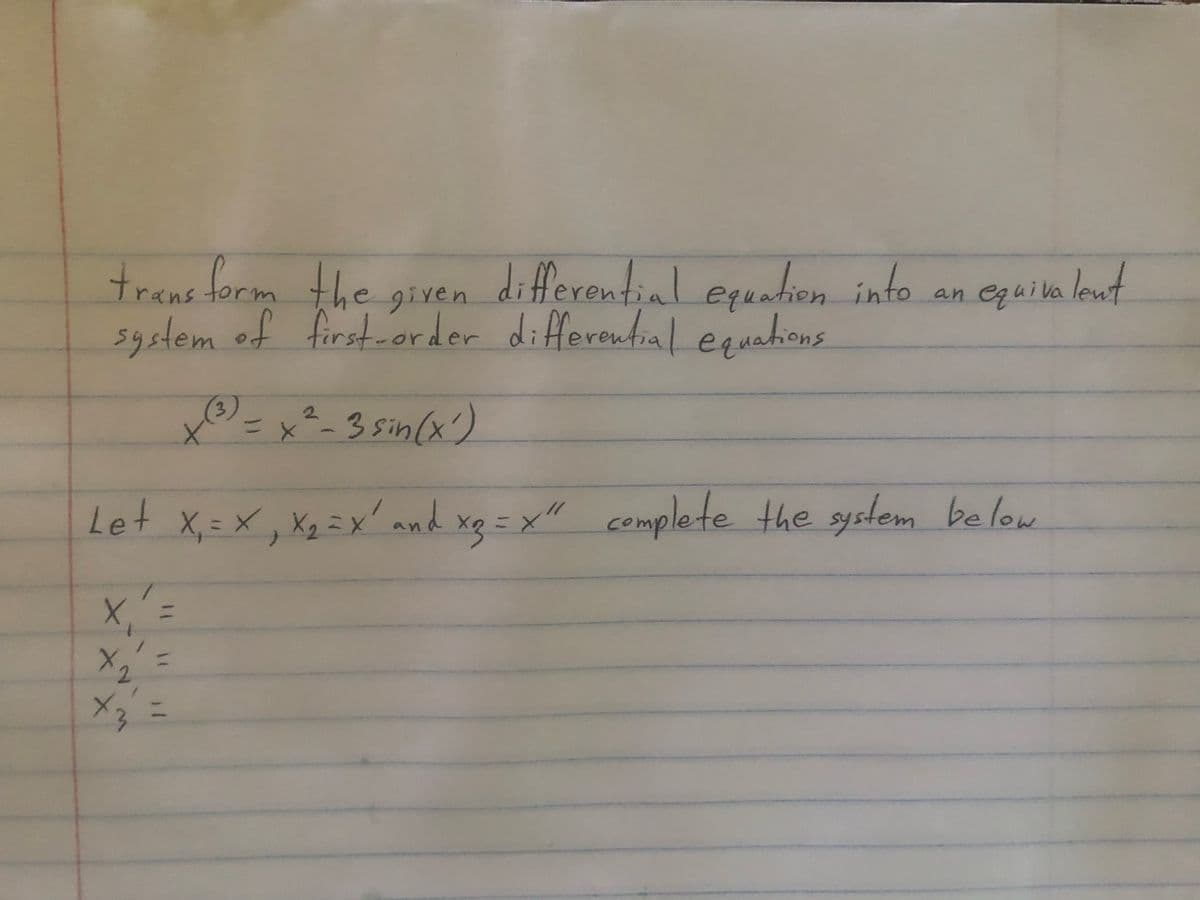 transform the given differential equation into an equivalent
system of first-order differential equations
x⁽³⁾ = x² - 3 sin(x')
Let x₁ = x, x₂ = x' and x₃ = x'' complete the system below
x₁' =
x₂' =
x₃' =